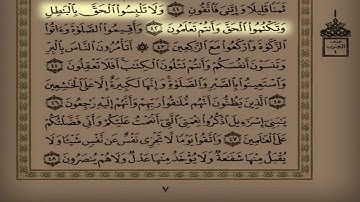 ثَمَنًا قَلِيلًا وَإِيَّايَ فَاتَّقُونِ ٤١ وَلَا تَلْبِسُوا الْحَقَّ بِالْبَاطِلِ
وَتَكْتُمُوا الْحَقَّ وَأَنتُمْ تَعْلَمُونَ ٤٢ وَأَقِيمُوا الصَّلَوٰةَ وَءَاتُوا
الزَّكَوٰةَ وَارْكَعُوا مَعَ الرَّاكِعِينَ ٤٣ أَتَأْمُرُونَ النَّاسَ بِالْبِرِّ
وَتَنسَوْنَ أَنفُسَكُمْ وَأَنتُمْ تَتْلُونَ الْكِتَابَ أَفَلَا تَعْقِلُونَ ٤٤
وَاسْتَعِينُوا بِالصَّبْرِ وَالصَّلَوٰةِ وَإِنَّهَا لَكَبِيرَةٌ إِلَّا عَلَى الْخَاشِعِينَ
٤٥ الَّذِينَ يَظُنُّونَ أَنَّهُم مُّلَاقُوا رَبِّهِمْ وَأَنَّهُمْ إِلَيْهِ رَاجِعُونَ ٤٦
يَابَنِي إِسْرَائِيلَ اذْكُرُوا نِعْمَتِيَ الَّتِي أَنْعَمْتُ عَلَيْكُمْ وَأَنِّي فَضَّلْتُكُمْ
عَلَى الْعَالَمِينَ ٤٧ وَاتَّقُوا يَوْمًا لَّا تَجْزِي نَفْسٌ عَن نَّفْسٍ شَيْئًا وَلَا
يُقْبَلُ مِنْهَا شَفَاعَةٌ وَلَا يُؤْخَذُ مِنْهَا عَدْلٌ وَلَا هُمْ يُنصَرُونَ ٤٨
٧